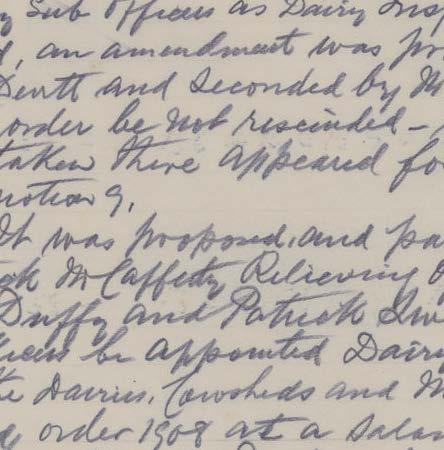 Sub Officers as Dairy Insp
, an amendment was pro
Devtt and Seconded by M
order be not rescinded -
taken there appeared fo
motion 9,
It was proposed, and pa
McCafferty Relieving O
Duffy and Patrick Swe
be appointed Dairy
the Dairies, Cowsheds and M
order 1908 at a Salar